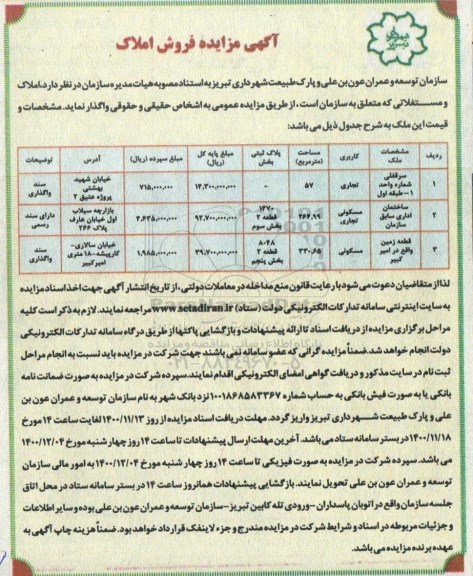 آگهی مزایده فروش املاک
شهرداری تبریز
سازمان توسعه و عمران عون بن علی و پارک طبیعت شهرداری تبریز به استناد مصوبه هیات مدیره سازمان در نظر دارد، املاک
و مستغلاتی که متعلق به سازمان است ، از طریق مزایده عمومی به اشخاص حقیقی و حقوقی واگذار نماید. مشخصات و
قیمت این ملک به شرح جدول ذیل می باشد:
ردیف مشخصات ملک کاربری مساحت (مترمربع) پلاک ثبتی بخش مبلغ پایه کل (ریال) مبلغ سپرده (ریال) آدرس توضیحات
۱ سرقفلی شماره واحد ۱- طبقه اول تجاری ۵۷ - ۱۴,۳۰۰,۰۰۰,۰۰۰ ۷۱۵,۰۰۰,۰۰۰ خیابان شهید بهشتی پروژه عتیق ۲ سند واگذاری
۲ ساختمان اداری سابق سازمان مسکونی تجاری ۲۶۴,۹۹ ۱۴۷۰ قطعه ۲ بخش سوم ۹۲,۷۰۰,۰۰۰,۰۰۰ ۴,۶۳۵,۰۰۰,۰۰۰ بازارچه سیلاب اول خیابان عارف پلاک ۲۶۶ دارای سند رسمی
۳ قطعه زمین واقع در امیر کبیر مسکونی ۳۳۰,۶۵ ۸۰۴۸ قطعه ۲ بخش پنجم ۳۹,۷۰۰,۰۰۰,۰۰۰ ۱,۹۸۵,۰۰۰,۰۰۰ خیابان سالاری- کارپیشه-۱۸ متری امیرکبیر سند واگذاری
لذا از متقاضیان دعوت می شود با رعایت قانون منع مداخله در معاملات دولتی ، از تاریخ انتشار آگهی جهت اخذ اسناد مزایده
به سایت اینترنتی سامانه تدارکات الکترونیکی دولت (ستاد) www.setadiran.ir مراجعه نمایند. لازم به ذکر است کلیه
مراحل برگزاری مزایده از دریافت اسناد تا ارائه پیشنهادات و بازگشایی پاکتها از طریق درگاه سامانه تدارکات الکترونیکی
دولت انجام خواهد شد.ضمناً مزایده گرانی که عضو سامانه نمی باشند جهت شرکت در مزایده باید نسبت به انجام مراحل
ثبت نام در سایت مذکور و دریافت گواهی امضای الکترونیکی اقدام نمایند.سپرده شرکت در مزایده به صورت ضمانت نامه
بانکی و یا به صورت فیش بانکی به حساب شماره ۱۰۰۱۸۶۸۵۸۳۳۶۷ نزد بانک شهر به نام سازمان توسعه و عمران عون بن
علی و پارک طبیعت شهرداری تبریز واریز گردد. مهلت دریافت اسناد مزایده از روز ۱۴۰۰/۱۱/۱۳ لغایت ساعت ۱۴ مورخ
۱۴۰۰/۱۱/۱۸ در بستر سامانه ستاد می باشد. آخرین مهلت ارسال پیشنهادات تا ساعت ۱۴ روز چهار شنبه مورخ ۱۴۰۰/۱۲/۰۴
می باشد. سپرده شرکت در مزایده به صورت فیزیکی تا ساعت ۱۴ روز چهار شنبه مورخ ۱۴۰۰/۱۲/۰۴ به امور مالی سازمان
توسعه و عمران عون بن علی تحویل نمایند. بازگشایی پیشنهادات همانروز ساعت ۱۴ در بستر سامانه ستاد در محل اتاق
جلسه سازمان واقع در اتوبان پاسداران-ورودی تله کابین تبریز-سازمان توسعه و عمران عون بن علی بوده و سایر اطلاعات
و جزئیات مربوطه در اسناد و شرایط شرکت در مزایده مندرج و جزء لاینفک قرارداد خواهد بود. ضمناً هزینه چاپ آگهی به
عهده برنده مزایده می باشد.